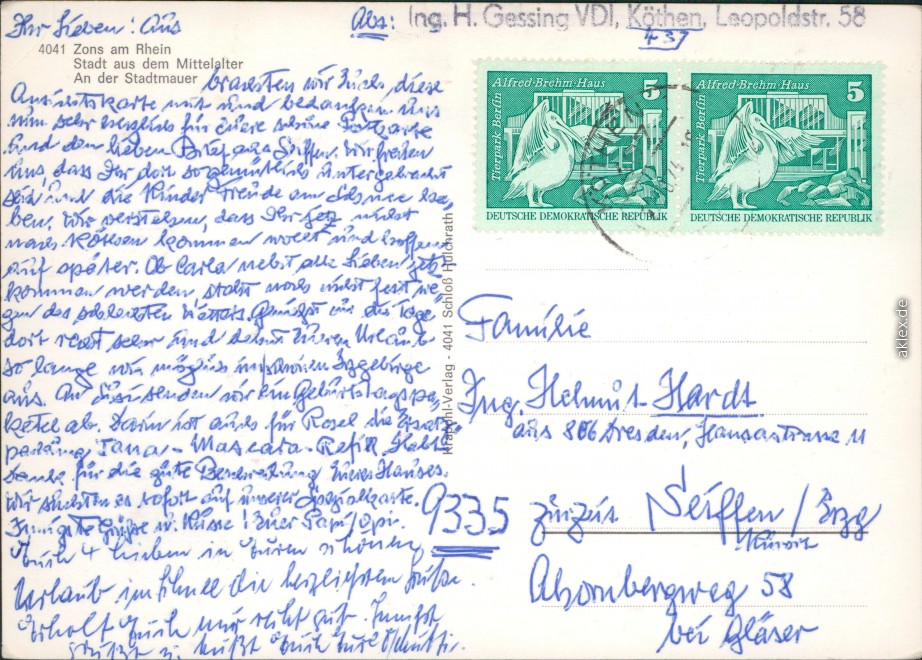 Ihr Lieben! Aus
Abs: Ing. H. Gessing VDI, Köthen, Leopoldstr. 58
437
4041 Zons am Rhein
Stadt aus dem Mittelalter
An der Stadtmauer
brachten wir Euch diese
Ansichtskarte mit und bedanken uns
nun sehr herzlich für Euere schöne Postkarte
und den lieben Brief aus Seiffen. Wir freuen
uns dass Ihr dort so gemütlich untergebracht
seid und die Kinder Freude am Schnee ha-
ben. Wir verstehen, dass Ihr jetzt nicht
nach Köthen kommen wollt und hoffen
auf später. Ob Carla nebst alle Lieben jetzt
kommen werden steht noch nicht fest we-
gen des schlechten Wetters. die Tage
dort recht sehr und dehnt Euren Urlaub
so lange wie möglich im schönen Erzgebirge
aus. An senden wir ein Geburtstagspa-
ket ab. Darin ist auch für Rosel die
Jana-Mascara-Refill. Habt
Dank für die gute Beschreibung Eueres Hauses.
Wir suchten es sofort auf unserer Spezialkarte.
Innigste Grüße u. Küsse! Euer Papi/Opi.
Euch 4 Lieben in Euren schönen
Urlaub im Schnee die herzlichsten Grüße.
Erholt Euch nur recht gut. Innigst
grüßt u. küßt Euch Eure
Krapohl-Verlag - 4041 Schloß Hülchrath
Alfred-Brehm-Haus 5
Tierpark Berlin
DEUTSCHE DEMOKRATISCHE REPUBLIK
Alfred-Brehm-Haus 5
Tierpark Berlin
DEUTSCHE DEMOKRATISCHE REPUBLIK
Familie
Ing. Helmut Hardt
aus 806 Dresden, Hansastrasse 11
9335 zurzeit Seiffen/Erzg
Kurort
Ahornbergweg 58
bei Gläser
aklex.de